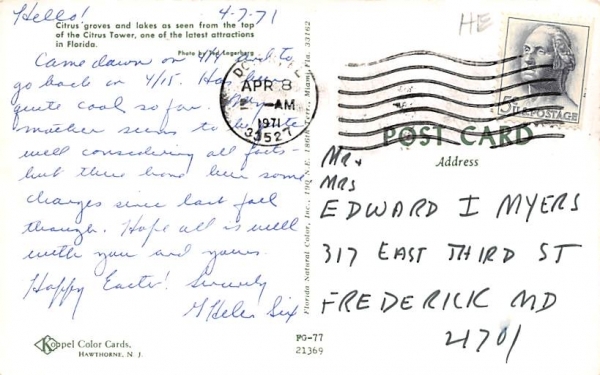 Hello! 4-7-71
Citrus groves and lakes as seen from the top
of the Citrus Tower, one of the latest attractions
in Florida.
Photo by Ted Lagerberg
Came down on 4/4 and to
go back on 4/15. Has been
quite cool so far. My
mother seems to be quite
well considering all facts-
but there have been some
changes since last fall
though. Hope all is well
with you and yours.
Happy Easter! Sincerely
Helen Six
Koppel Color Cards.
HAWTHORNE, N. J.
Florida Natural Color, Inc., 190 N.E. 180th Miami, Fla. 33162
HE
APR 8
AM
1971
33527
5¢ U.S. POSTAGE
POST CARD
Address
Mr +
Mrs
EDWARD I MYERS
317 EAST THIRD ST
FREDERICK MD
21701
PG-77
21369